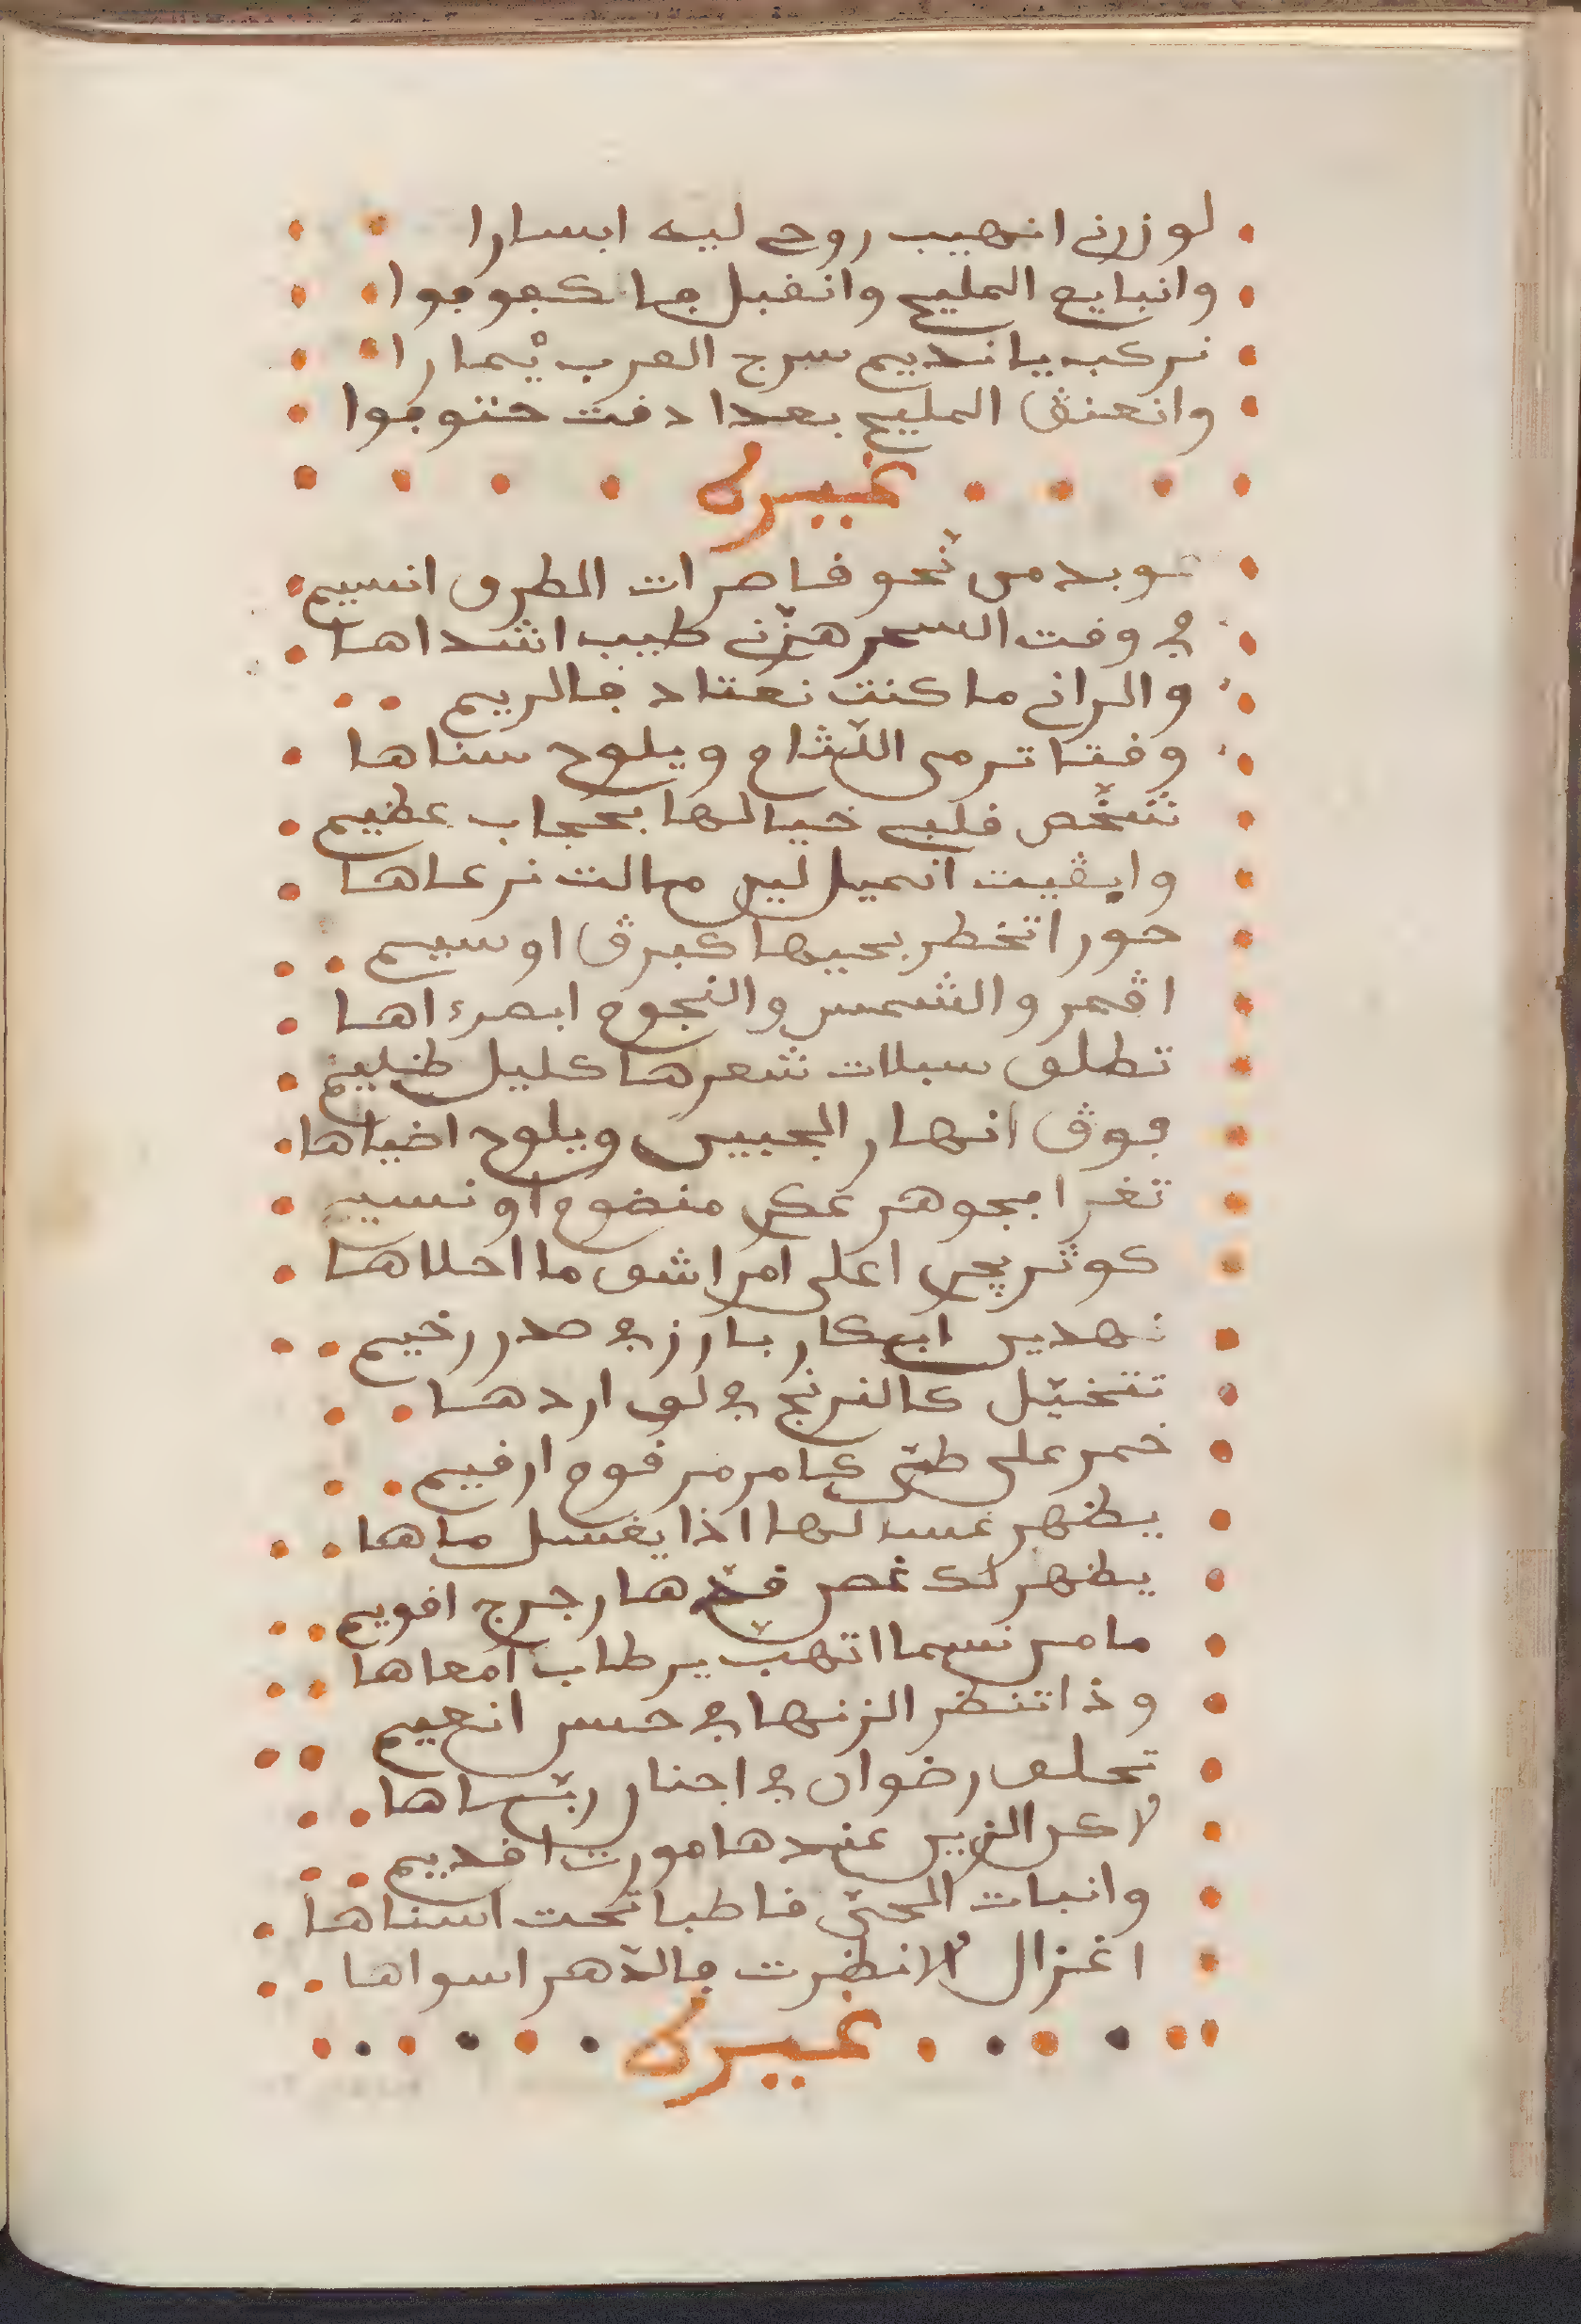 لو زرني انهيب روحي ليه ابسارا
وانبايع المليح وانقبل جا كفوفوا
نركب يا نديم سرج العرب يُمارا
وانعنڨ المليح بعدا دقت حنتوفوا
غيره
من نحو قاصرات الطرف انسيم
في وقت السحر هزّني طيب اشداها
والراني ما كنت نعتاد فالريم
وقتا ترمي اللّثام ويلوح سناها
شخّص قلبي خيالها بحجاب عظيم
وابڨيت انميل ليس مالت نرعاها
حور اتخطر بحيها كبرڨ اوسيم
اڨمر والشمس والنجوم ابصرءاها
تطلق سبلات شعرها كليل ظليم
فوڨ انهار الجبين ويلوح اضياها
تغرا بجوهر عكس منضوم او نسيم
كوثر يجري اعلى امراشف ما احلاها
نهدين ابكار بارز في صدر رخيم
تتخيّل كالنرنج في لون اردها
خمر على طيّ كامرمر فوم ارقيم
يظهر غسالها اذا يغسل ماها
يظهر لك غصن قدّها رجرج اقويم
مامن نسيما اتهبّ يرطاب امعاها
وذا تنضر الزنها في حسن انعيم
تحلف رضوان في اجنان ربّاها
لاكن الزين عندها مورث اقديم
وانبات الحيّ قاطبا تحت اسناها
اغزال لا نظرت فالدّهر اسواها
غيره